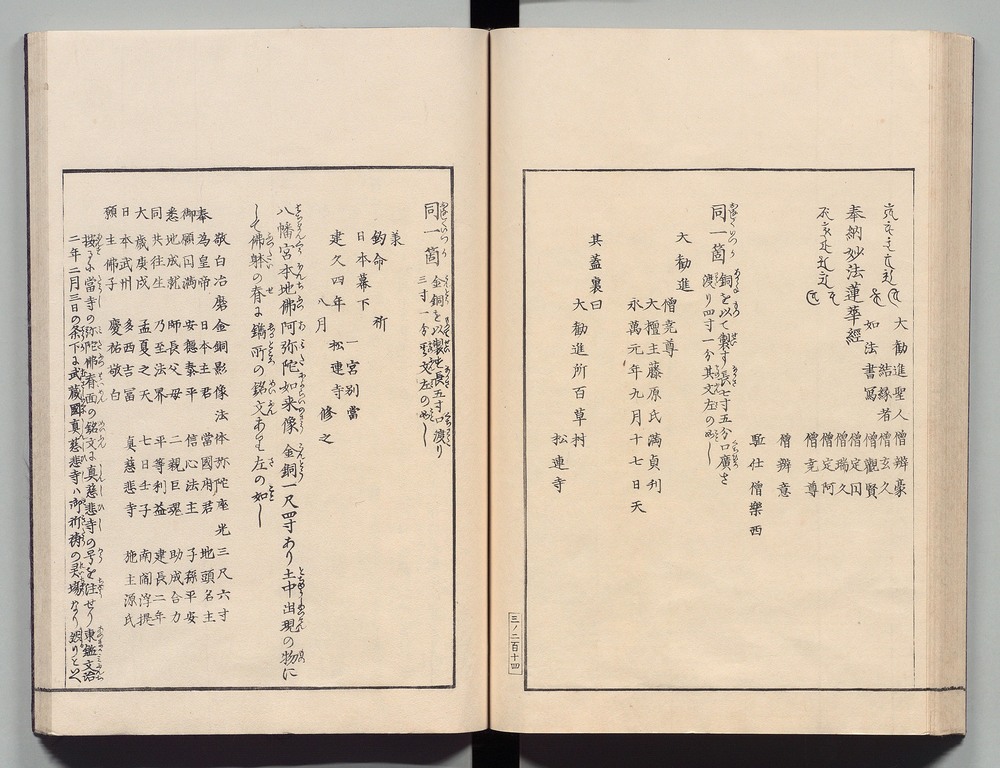 奉納妙法蓮華經
大勸進聖人僧辨豪
結縁者僧玄久
如法書寫僧觀賢
僧定円
僧瑞久
僧定阿
僧堯尊
僧辨意
駈仕僧樂西
同一箇銅を以て製す長七寸五分口廣さ
渡り四寸一分其文左の如し
大勸進
僧堯尊
大檀主藤原氏滿貞利
永萬元年九月十七日天
其蓋裏曰
大勸進所百草村
松連寺
三ノ二百十四
同一箇金銅を以製す長五寸口渡り
三寸一分文左の如し
鈞命
日本幕下祈一宮別當
建久四年八月松連寺修之
八幡宮本地佛阿弥陀如来像金銅一尺四寸あり土中出現の物に
して佛躰の脊に鐫所の銘文あり左の如し
敬白冶磨金銅影像法体弥陀座光三尺六寸
奉為皇帝日本主君當國府君地頭名主
御願円滿安穏泰平信心法主子孫平安
悉地成就師長父母二親巨魂助成合力
同共往生乃至法界平等利益建長二年
大歳庚戌孟夏之天七日壬子南閻浮提
日本武州多西吉冨真慈悲寺施主源氏
願主佛子慶祐敬白
按るに當寺の弥陀佛脊面の銘文に真慈悲寺の号を注せり東鑑文治
二年二月三日の条下に武藏國真慈悲寺ハ御祈祷の灵場なり